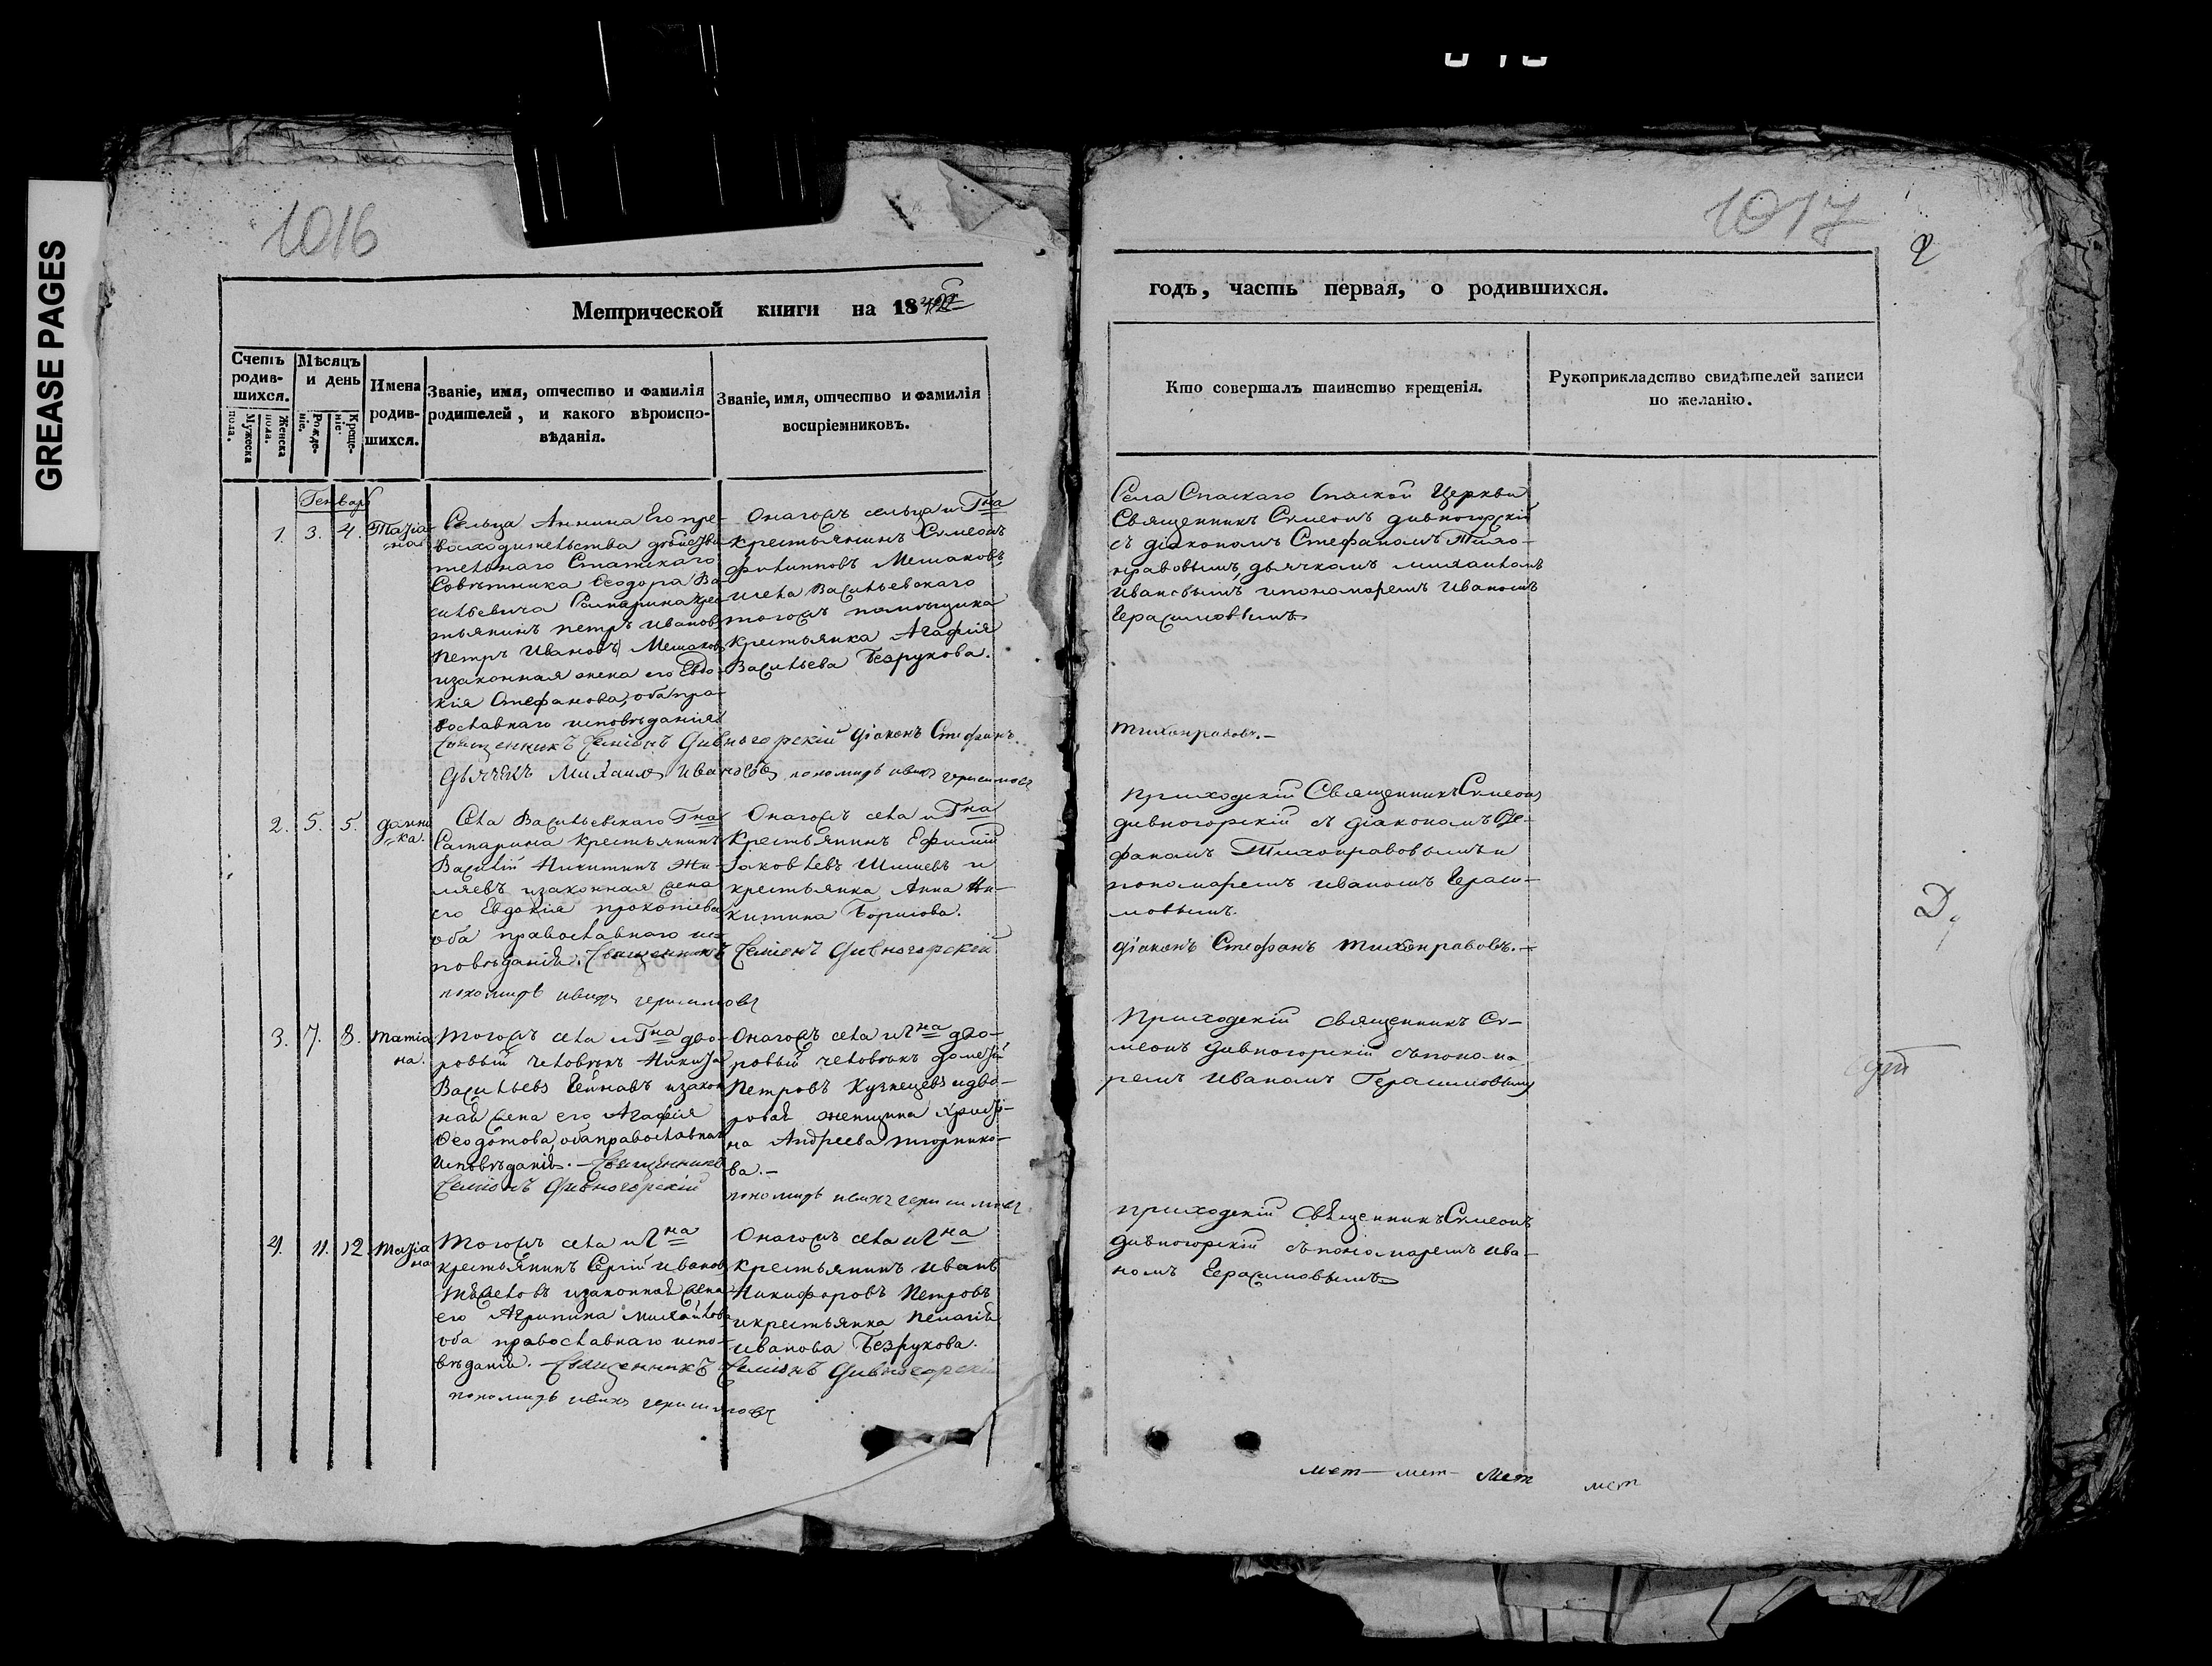 GREASE PAGES
1016
Метрической книги на 1842
Счетъ родив-шихся.
Мужеска пола.
Женска пола.
Мѣсяцъ и день
Рожде-ніе.
Креще-ніе.
Имена родив-шихся.
Званіе, имя, отчество и фамилія родителей, и какого вѣроиспо-вѣданія.
Званіе, имя, отчество и фамилія воспріемниковъ.
Генварь
1. 3. 4. Татіа-
на
Сельца Аннина Его пре-
восходительства дѣйстви
тельнаго Статскаго
Совѣтника Ѳеодора Ва-
сильевича Самарина кре
тьянинъ петръ Иванов
Петръ Ивановъ Мешковъ
изаконная жена его Евдо-
кія Стефанова, оба пра-
вославнаго исповѣданія
Священникъ Симіонъ Дивногорскій Діаконъ Стефанъ
Дьячекъ Михаилъ Ивановъ пономарь иванъ герасимовъ
Онагожъ сельца и Гна
крестьянинъ Симеонъ
Филипповъ Мешковъ
исела Васильевскаго
тогожъ помѣщика
крестьянка Агафія
Васильева Безрукова.
2. 5. 5. домни
ка.
Села Васильевскаго Гна
Самарина крестьянинъ
Василій Никитинъ
изаконная жена
его Евдокія прокопіева
оба православнаго ис-
повѣданія. Священникъ Симіонъ Дивногорскій
пономарь иванъ герасимовъ
Онагожъ села и Гна
Крестьянинъ Ефимій
Іаковлевъ Шишевъ и
крестьянка Анна Ни-
китина Борисова.
3. 7. 8. татіа
на.
Тогожъ села и Гна дво-
ровый человѣкъ Никита
Васильевъ изакон
ная жена его Агафія
Ѳеодотова, оба православнаго
исповѣданія. - Священникъ
Симіонъ Дивногорскій
Онагожъ села и Гна дво-
ровый человѣкъ
Петровъ Кузнецевъ идво-
ровая женщина Христи-
на Андреева
ва.-
пономарь иванъ герасимовъ
4. 11. 12. татіа
на
Тогожъ села и Гна
крестьянинъ Сергій Иванов
изаконная жена
его Агрипина михайлова
оба православнаго испо-
вѣданія. - Священникъ Симіонъ Дивногорскій
пономарь иванъ герасимовъ
Онагожъ села и Гна
крестьянинъ иванъ
Никифоровъ Петровъ
икрестьянка пелагія
иванова Безрукова.
1017
2
годъ, часть первая, о родившихся.
Кто совершалъ таинство крещенія.
Рукоприкладство свидѣтелей записи по желанію.
Села Спаскаго Спаской Церкви
Священникъ Симеонъ дивногорскій
съ діакономъ Стефаномъ Тихо-
нравовымъ, дьячкомъ михаиломъ
ивановымъ ипономаремъ Иваномъ
Герасимовымъ
тихонравовъ.-
приходскій Священникъ Симеонъ
дивногорскій съ діакономъ Сте-
фаномъ Тихонравовымъ и
пономаремъ иваномъ Гераси-
мовымъ.
діаконъ Стефанъ тихонравовъ.-
Приходскій священникъ Си-
меонъ дивногорскій съ понома
ремъ Иваномъ Герасимовымъ
приходскій священникъ Симеонъ
дивногорскій съ пономаремъ ива-
номъ Герасимовымъ
мет- мет- мет мет